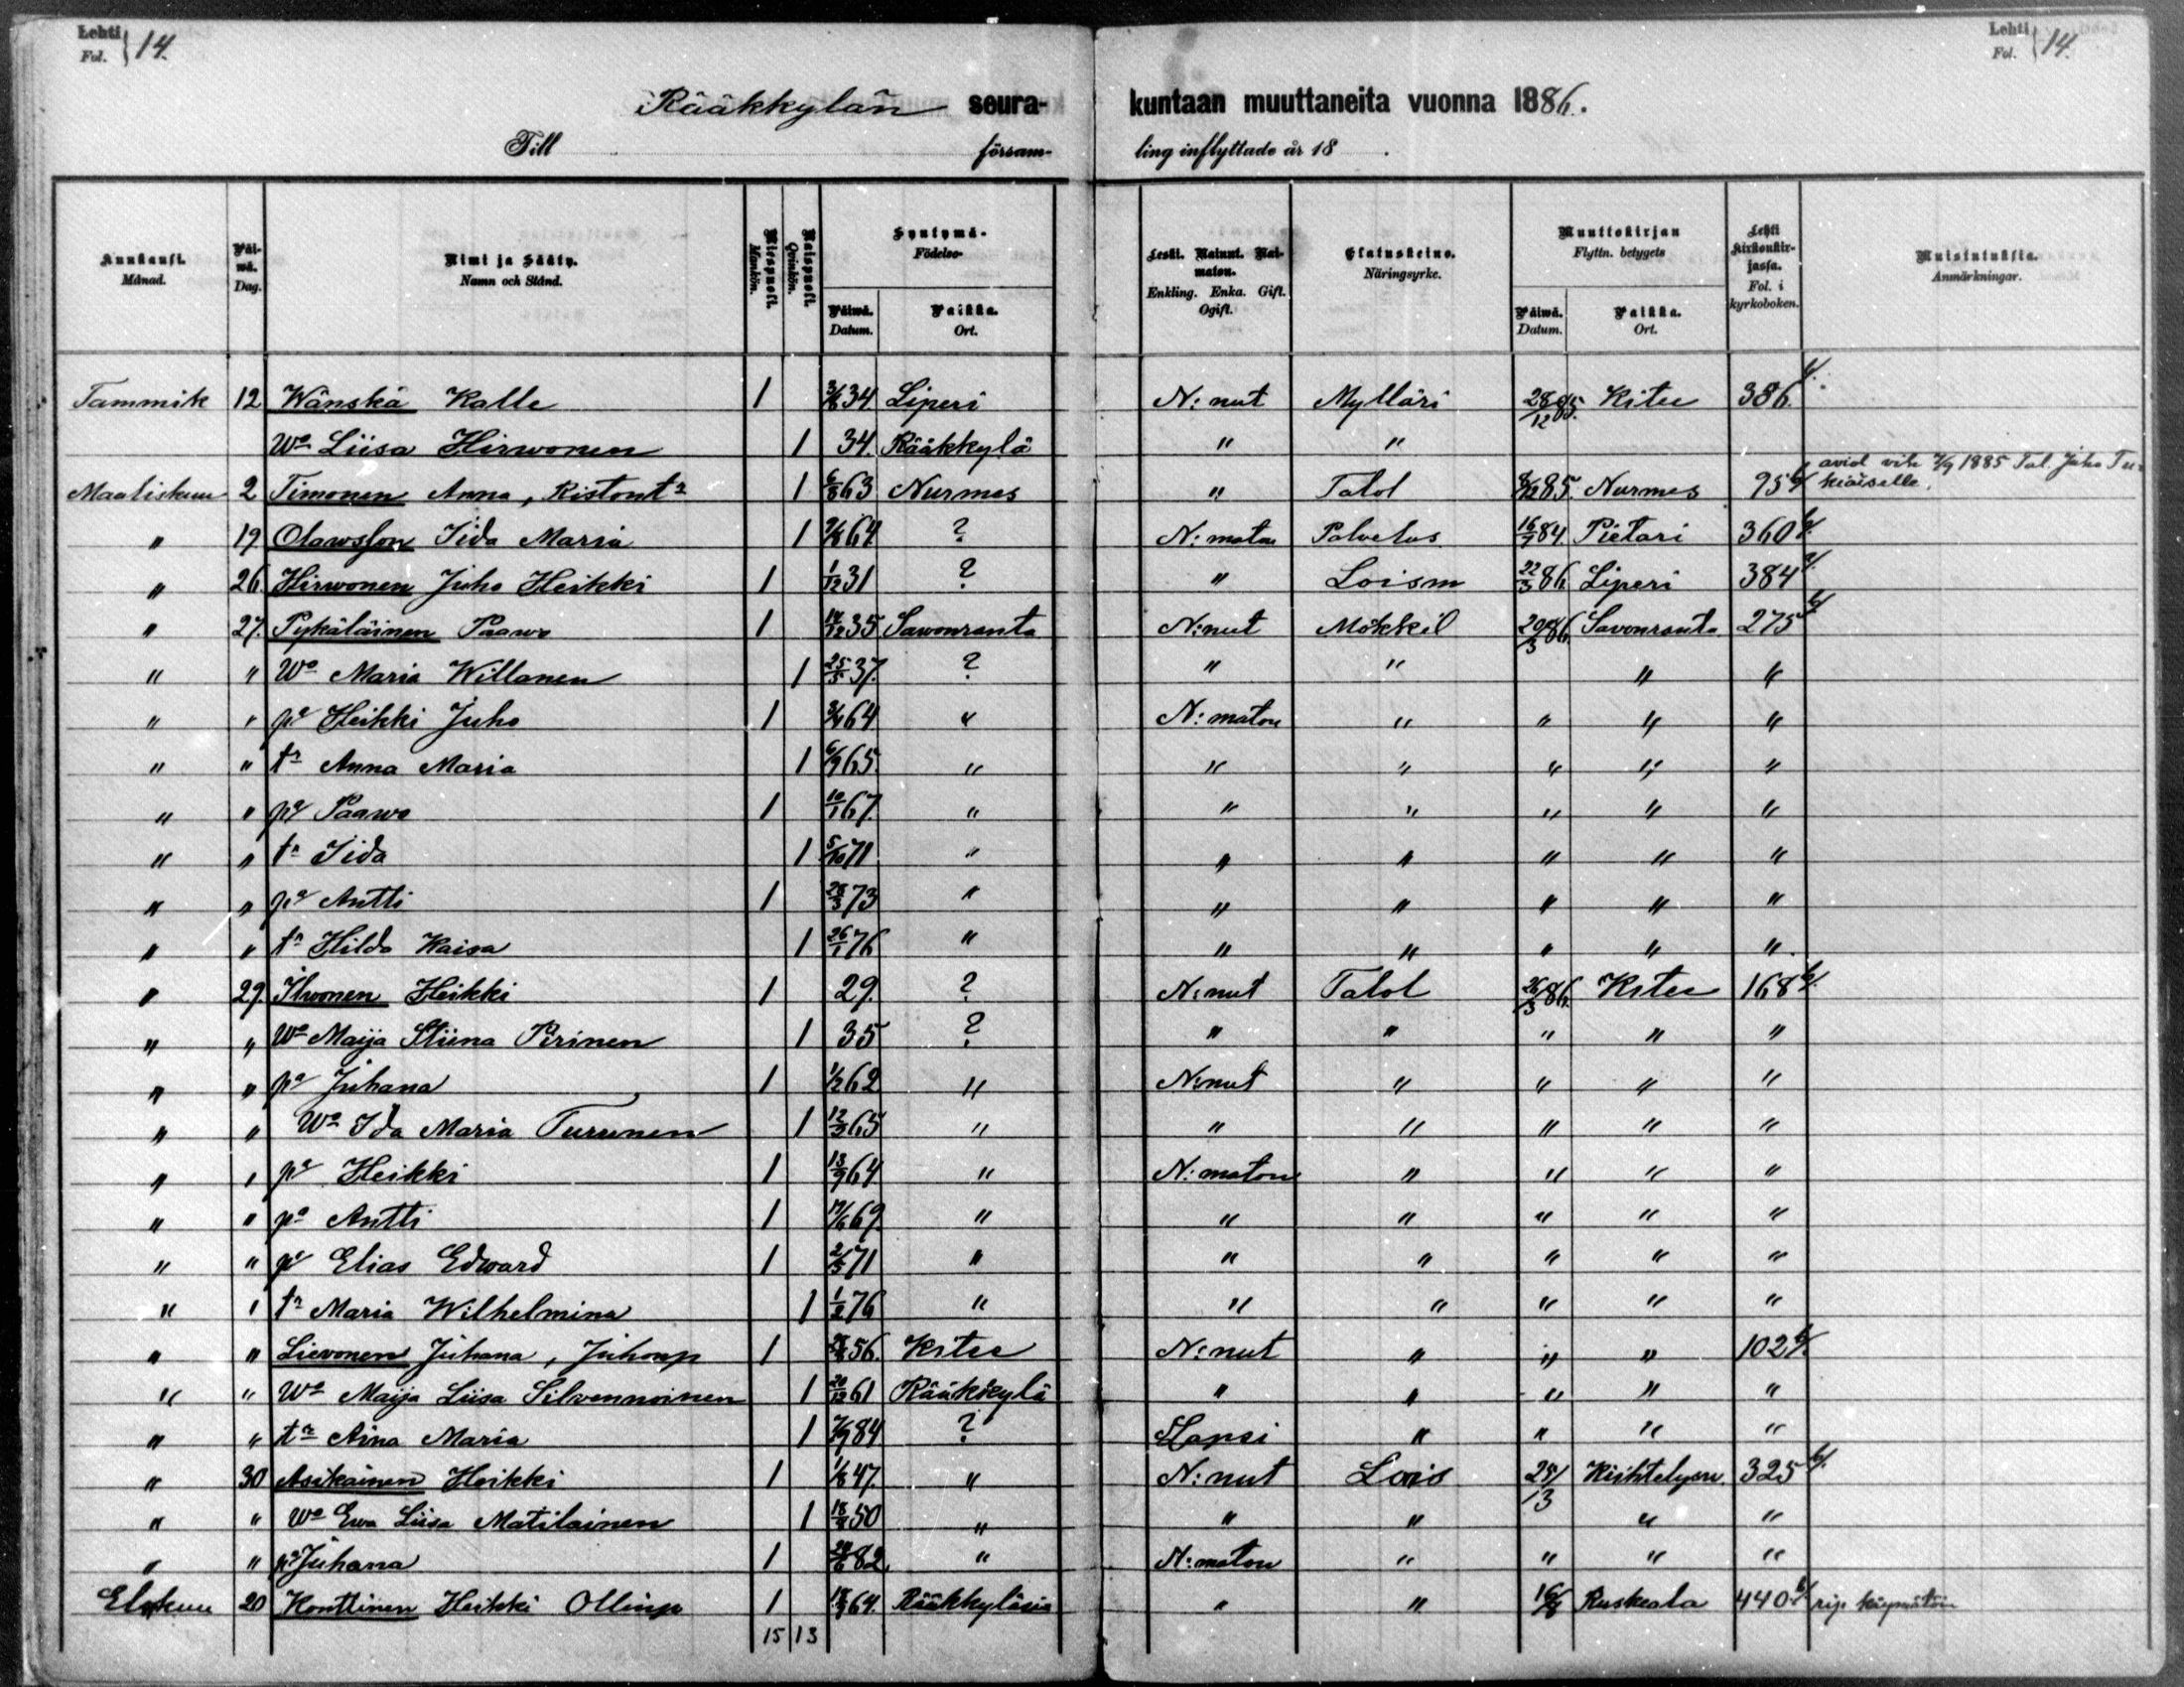 Lehti Fol. } 14.
Lehti Fol. } 14.
Rääkkylän seura- kuntaan muuttaneita vuonna 1886.
Till försam- ling inflyttade år 18 .
Kuukausi. Månad.
Päivä. Dag.
Nimi ja Sääty. Namn och Stånd.
Miespuoli. Mankön.
Naispuoli. Qvinkön.
Syntymä- Födelse-
Päivä. Datum.
Paikka. Ort.
Leski. Nainut. Naimaton. Enkling. Enka. Gift. Ogift.
Elatuskeino. Näringsyrke.
Muuttokirjan Flyttn. betygets
Päivä. Datum.
Paikka. Ort.
Lehti kirkonkirjassa. Fol. i kyrkoboken.
Muistutuksia. Anmärkningar.
Tammik 12 Wänskä Kalle 1 34 Liperi N:nut Mylläri 28/12 85. Kitee 386.
Wo Liisa Hirwonen 1 34. Rääkkylä " "
Maaliskuu 2 Timonen Anna, Ristont 1 6/8 63 Nurmes " Talol 85. Nurmes 95 aviol 1885 Tal. Juho
" 19 Olawsson Iida Maria 1 64 ? N:maton Palvelus 16/7 84. Pietari 360
" 26. Hirwonen Juho Heikki 1 1/12 31 ? " Loism 22/3 86 Liperi 384
" 27. Pykäläinen Paawo 1 35 Sawonranta N:nut Mökkil 20/3 86 Savonranta 275
" " Wo Maria Willanen 1 25/5 37. ? " " " "
" " pa Heikki Juho 1 64 " N:maton " " " "
" " tr Anna Maria 1 6/9 65. " " " " " "
" " pa Paawo 1 10/1 67. " " " " " "
" " tr Iida 1 5/10 71 " " " " " "
" " pa Antti 1 28/3 73 " " " " " "
" " tr Hilda Kaisa 1 26/1 76 " " " " " "
" 29. Ilwonen Heikki 1 29. ? N:nut Talol 26/3 86. Kitee 168
" " Wo Maija Stiina Pirinen 1 35 ? " " " " "
" " pa Juhana 1 1/2 62 " N:nut " " " "
" " Wo Ida Maria Turunen 1 12/3 65 " " " " " "
" " pa Heikki 1 13/9 64 " N:maton " " " "
" " pa Antti 1 69 " " " " " "
" " pa Elias Edward 1 2/5 71 " " " " " "
" " tr Maria Wilhelmina 1 1/2 76 " " " " " "
" " Lievonen Juhana, Juhonp 1 56. Kitee N:nut " " " 102
" " Wo Maija Liisa Silvennoinen 1 20/12 61 Rääkkylä " " " " "
" " tr Aina Maria 1 84 ? Lapsi " " " "
" 30 Asikainen Heikki 1 47. " N:nut Lois 25/3 Kiihtelysv. 325
" " Wo Ewa Liisa Matilainen 1 50 " " " " "
" " pa Juhana 1 82. " N:maton " " " "
Elokuu 20 Konttinen Heikki Ollinp 1 64. Rääkkylässä " " 16/8 Ruskeala 440 rip. käymätön
15 13